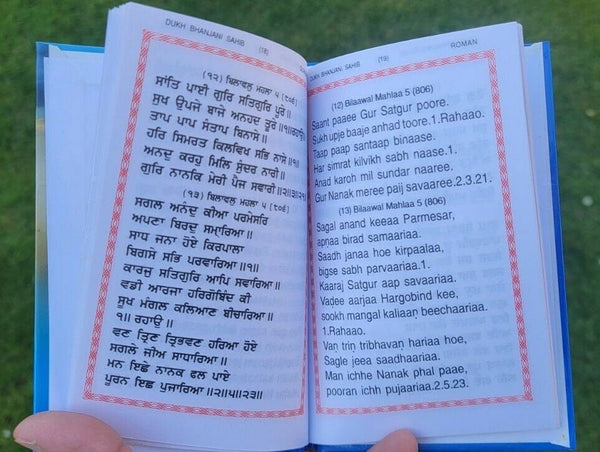 DUKH BHANJANI SAHIB (18)
(੧੨) ਬਿਲਾਵਲੁ ਮਹਲਾ ੫ [੮੦੬]
ਸਾਂਤਿ ਪਾਈ ਗੁਰਿ ਸਤਿਗੁਰਿ ਪੂਰੇ॥
ਸੁਖ ਉਪਜੇ ਬਾਜੇ ਅਨਹਦ ਤੂਰੇ॥੧॥ਰਹਾਉ॥
ਤਾਪ ਪਾਪ ਸੰਤਾਪ ਬਿਨਾਸੇ॥
ਹਰਿ ਸਿਮਰਤ ਕਿਲਵਿਖ ਸਭਿ ਨਾਸੇ॥੧॥
ਅਨਦੁ ਕਰਹੁ ਮਿਲਿ ਸੁੰਦਰ ਨਾਰੀ॥
ਗੁਰਿ ਨਾਨਕਿ ਮੇਰੀ ਪੈਜ ਸਵਾਰੀ॥੨॥੩॥੨੧॥
(੧੩) ਬਿਲਾਵਲੁ ਮਹਲਾ ੫ [੮੦੬]
ਸਗਲ ਅਨੰਦੁ ਕੀਆ ਪਰਮੇਸਰਿ
ਅਪਣਾ ਬਿਰਦੁ ਸਮ੍ਹਾਰਿਆ॥
ਸਾਧ ਜਨਾ ਹੋਏ ਕਿਰਪਾਲਾ
ਬਿਗਸੇ ਸਭਿ ਪਰਵਾਰਿਆ॥੧॥
ਕਾਰਜੁ ਸਤਿਗੁਰਿ ਆਪਿ ਸਵਾਰਿਆ॥
ਵਡੀ ਆਰਜਾ ਹਰਿਗੋਬਿੰਦ ਕੀ
ਸੂਖ ਮੰਗਲ ਕਲਿਆਣ ਬੀਚਾਰਿਆ॥
੧॥ ਰਹਾਉ ॥
ਵਣ ਤ੍ਰਿਣ ਤ੍ਰਿਭਵਣ ਹਰਿਆ ਹੋਏ
ਸਗਲੇ ਜੀਅ ਸਾਧਾਰਿਆ॥
ਮਨ ਇਛੇ ਨਾਨਕ ਫਲ ਪਾਏ
ਪੂਰਨ ਇਛ ਪੁਜਾਰਿਆ॥੨॥੫॥੨੩॥
DUKH BHANJAN, SAHIB (19) ROMAN
(12) Bilaawal Mahlaa 5 (806)
Saant paaee Gur Satgur poore.
Sukh upje baaje anhad toore.1.Rahaao.
Taap paap santaap binaase.
Har simrat kilvikh sabh naase.1.
Anad karoh mil sundar naaree.
Gur Nanak meree paij savaaree.2.3.21.
(13) Bilaawal Mahlaa 5 (806)
Sagal anand keeaa Parmesar,
apnaa birad samaariaa.
Saadh janaa hoe kirpaalaa,
bigse sabh parvaariaa.1.
Kaaraj Satgur aap savaariaa.
Vadee aarjaa Hargobind kee,
sookh mangal kaliaaṇ beechaariaa.
1.Rahaao.
Vaṇ triṇ tribhavaṇ hariaa hoe,
Sagle jeea saadhaariaa.
Man ichhe Nanak phal paae,
pooran ichh pujaariaa.2.5.23.